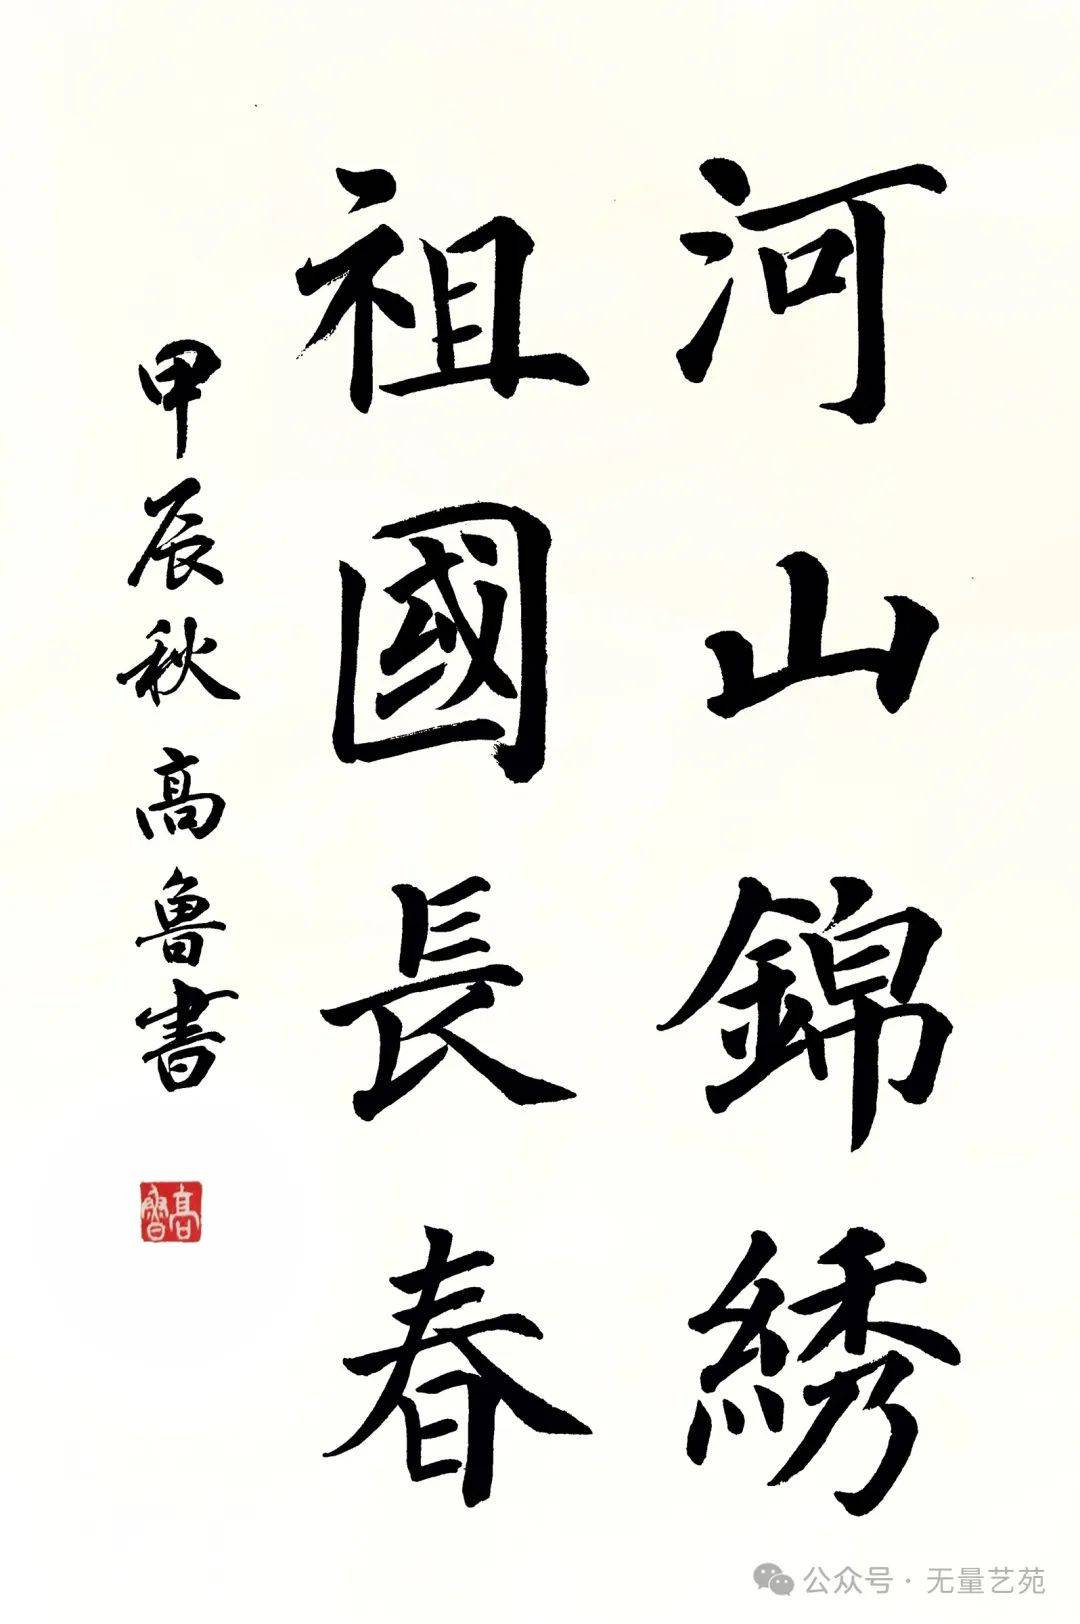 河山錦綉
祖國長春
甲辰秋高魯書
高魯
公众号 · 无量艺苑